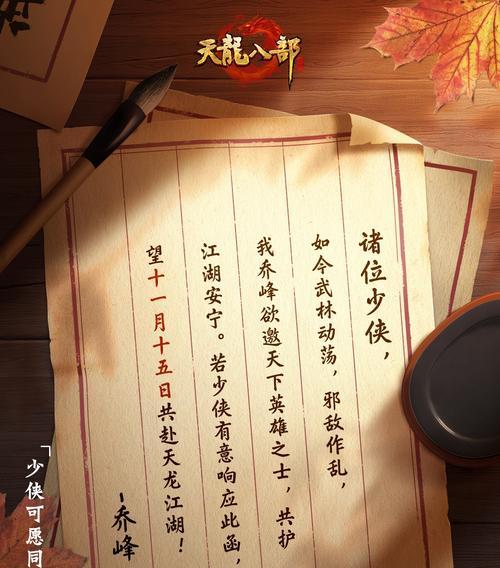 天龍八部
诸位少侠，
如今武林动荡，邪敌作乱，
我乔峰欲邀天下英雄之士，共护
江湖安宁。若少侠有意响应此函，
望十一月十五日共赴天龙江湖！
-乔峰
「少侠可愿同